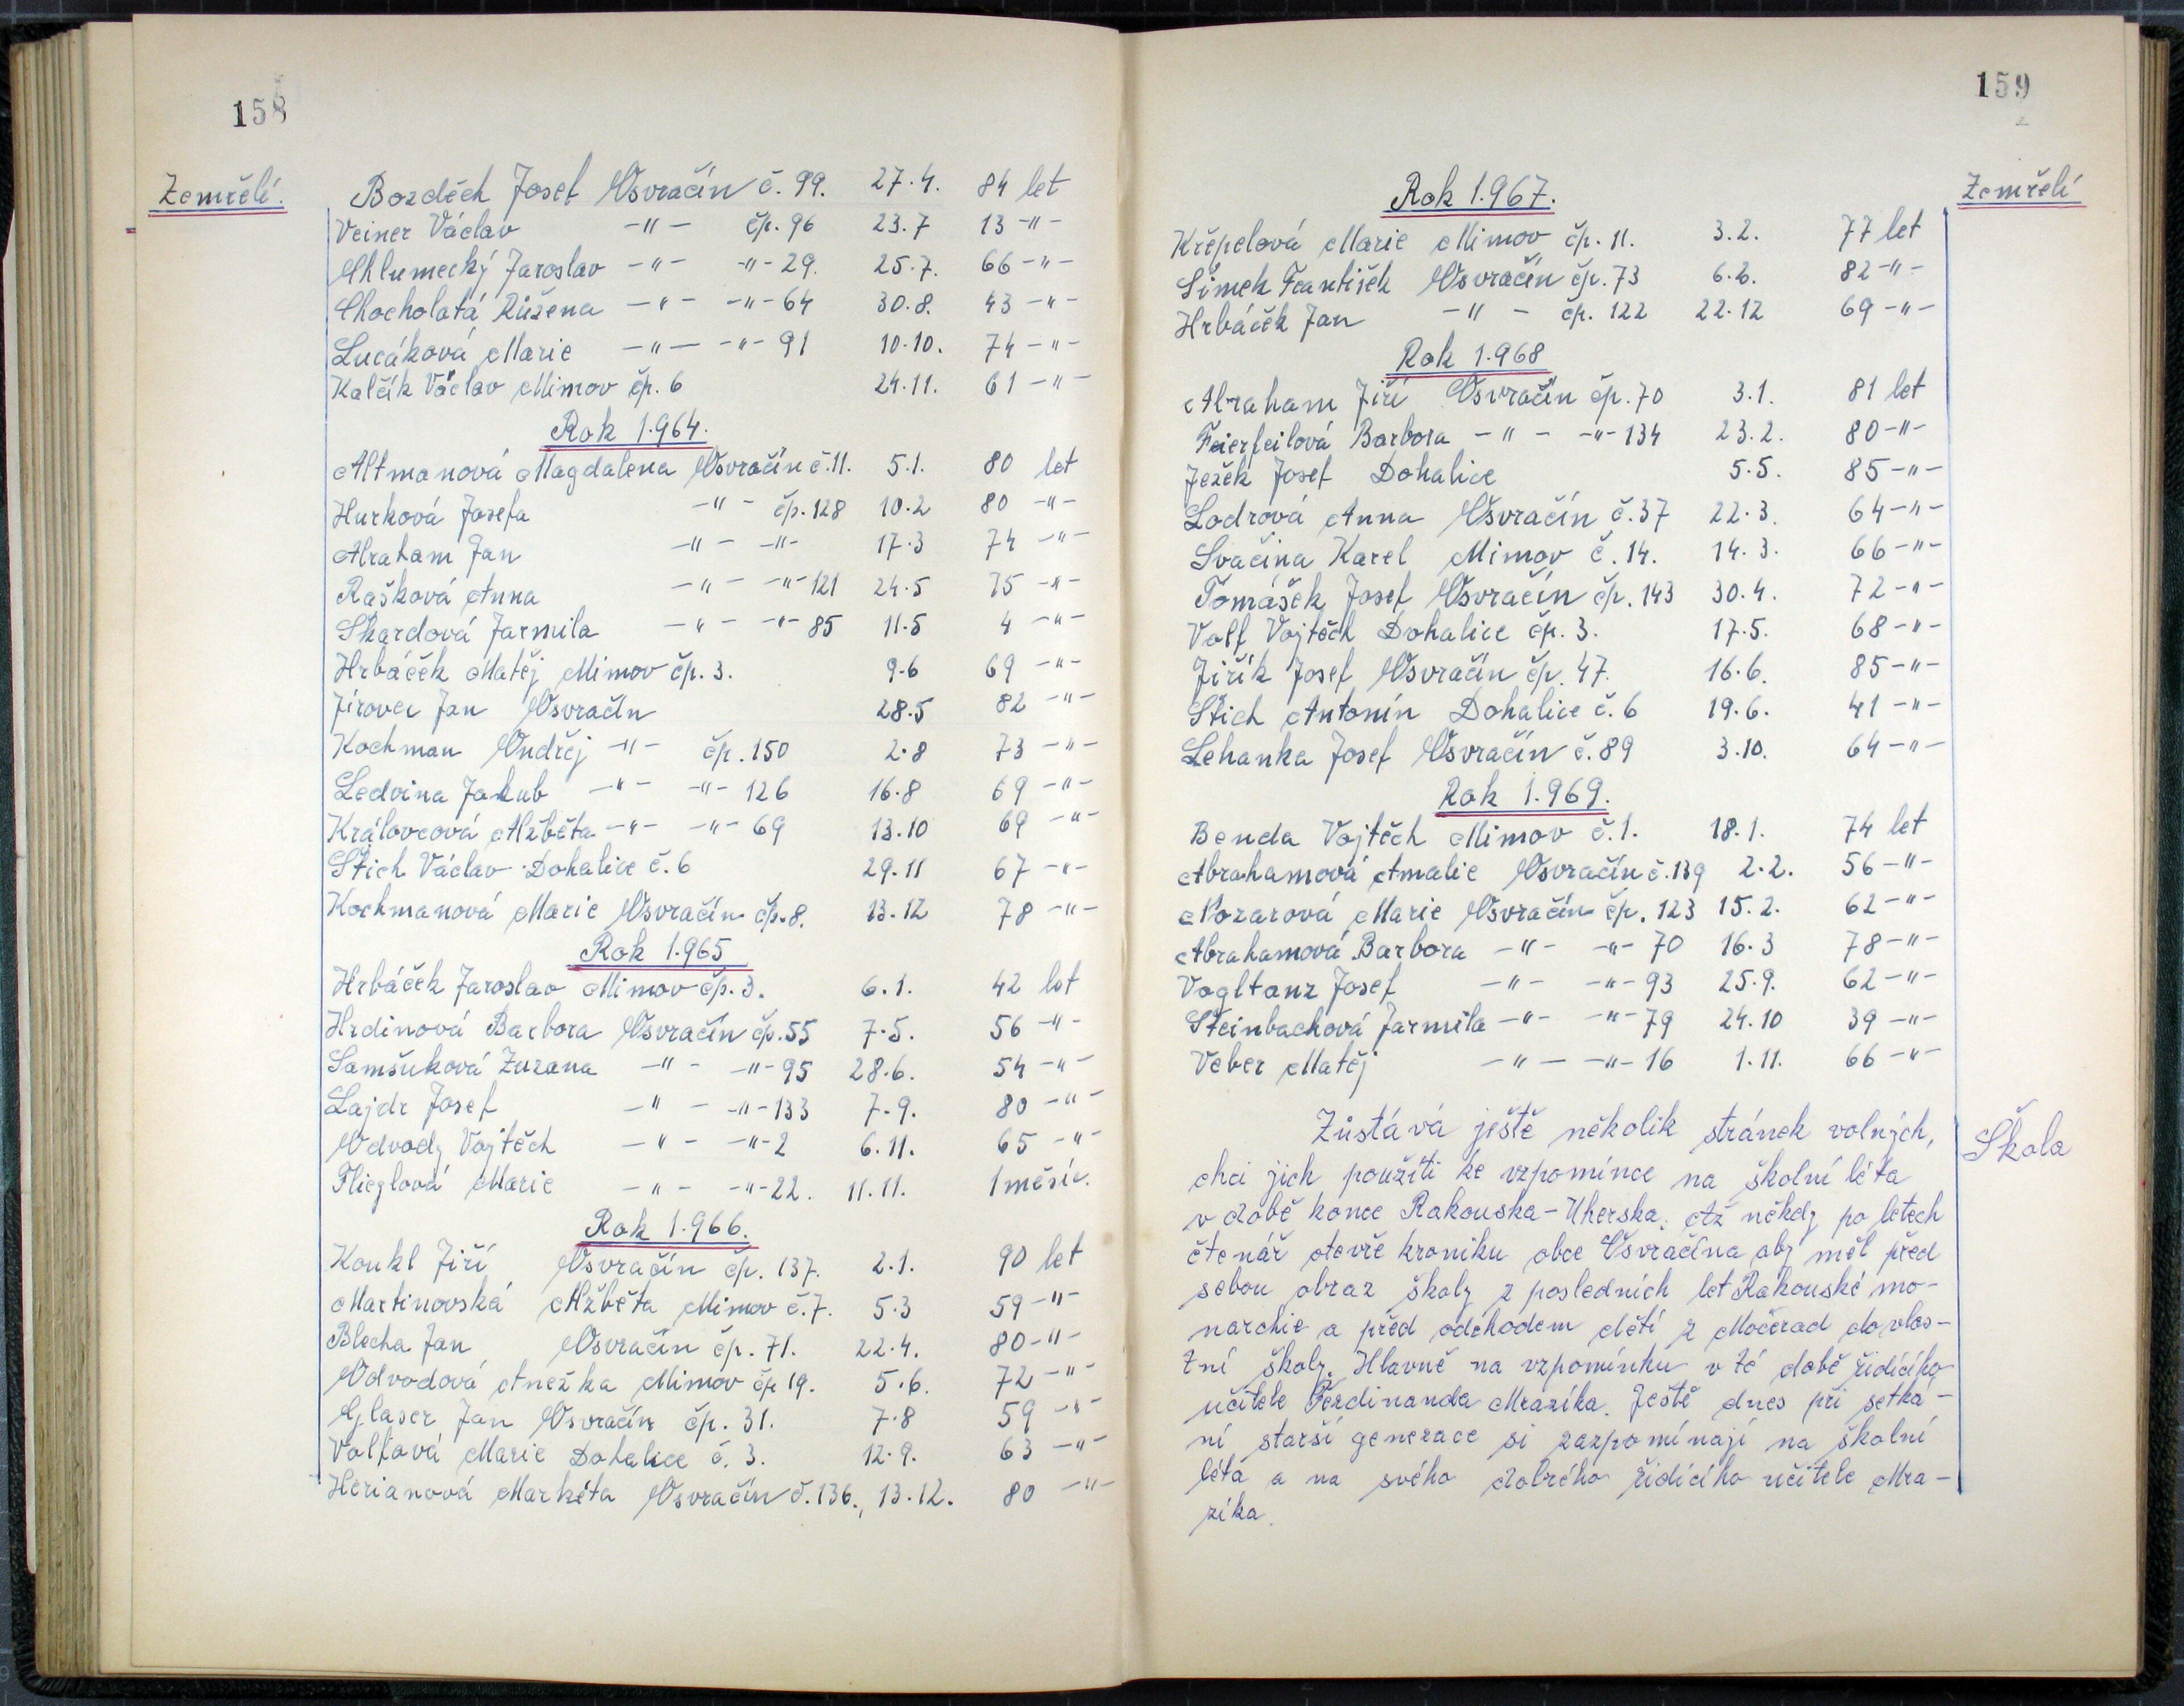 158
Zemřelí.
Bozděch Josef Osvračín č. 99. 27.4. 84 let
Veiner Václav -"- čp. 96 23.7 13 -"-
Chlumecký Jaroslav -"- -"- 29. 25.7. 66 -"-
Chocholatá Růžena -"- -"- 64 30.8. 43 -"-
Lucáková Marie -"- -"- 91 10.10. 74 -"-
Kalčík Václav Mimov čp. 6 24.11. 61 -"-
Rok 1.964.
Altmanová Magdalena Osvračín č.11. 5.1. 80 let
Hurková Josefa -"- čp. 128 10.2 80 -"-
Abraham Jan -"- -"- 17.3 74 -"-
Rašková Anna -"- -"- 121 24.5 75 -"-
Skardová Jarmila -"- -"- 85 11.5 4 -"-
Hrbáček Matěj Mimov čp. 3. 9.6 69 -"-
Jírovec Jan Osvračín 28.5 82 -"-
Kochman Ondřej -"- čp. 150 2.8 73 -"-
Ledvina Jakub -"- -"- 126 16.8 69 -"-
Královcová Alžběta -"- -"- 69 13.10 69 -"-
Stich Václav Dohalice č. 6 29.11 67 -"-
Kochmanová Marie Osvračín čp. 8. 13.12 78 -"-
Rok 1.965
Hrbáček Jaroslav Mimov čp. 3. 6.1. 42 let
Hrdinová Barbora Osvračín čp. 55 7.5. 56 -"-
Samšuková Zuzana -"- -"- 95 28.6. 54 -"-
Lajdr Josef -"- -"- 133 7.9. 80 -"-
Odvody Vojtěch -"- -"- 2 6.11. 65 -"-
Flieglová Marie -"- -"- 22. 11.11. 1 měsíc.
Rok 1.966.
Koukl Jiří Osvračín čp. 137. 2.1. 90 let
Martinovská Alžběta Mimov č. 7. 5.3 59 -"-
Blecha Jan Osvračín čp. 71. 22.4. 80 -"-
Odvodová Anežka Mimov čp 19. 5.6. 72 -"-
Glaser Jan Osvračín čp. 31. 7.8 59 -"-
Volfová Marie Dohalice č. 3. 12.9. 63 -"-
Herianová Markéta Osvračín č. 136., 13.12. 80 -"-
159
Zemřelí
Rok 1.967.
Křepelová Marie Mimov čp. 11. 3.2. 77 let
Šimek František Osvračín čp. 73 6.2. 82 -"-
Hrbáček Jan -"- čp. 122 22.12 69 -"-
Rok 1.968
Abraham Jiří Osvračín čp. 70 3.1. 81 let
Feierfeilová Barbora -"- -"- 134 23.2. 80 -"-
Ježek Josef Dohalice 5.5. 85 -"-
Lodrová Anna Osvračín č. 37 22.3. 64 -"-
Svačina Karel Mimov č. 14. 14.3. 66 -"-
Tomášek Josef Osvračín čp. 143 30.4. 72 -"-
Volf Vojtěch Dohalice čp. 3. 17.5. 68 -"-
Jiřík Josef Osvračín čp. 47. 16.6. 85 -"-
Stich Antonín Dohalice č. 6 19.6. 41 -"-
Lehanka Josef Osvračín č. 89 3.10. 64 -"-
Rok 1.969.
Benda Vojtěch Mimov č. 1. 18.1. 74 let
Abrahamová Amalie Osvračín č. 139 2.2. 56 -"-
Nozarová Marie Osvračín čp. 123 15.2. 62 -"-
Abrahamová Barbora -"- -"- 70 16.3 78 -"-
Vogltanz Josef -"- -"- 93 25.9. 62 -"-
Steinbachová Jarmila -"- -"- 79 24.10 39 -"-
Veber Matěj -"- -"- 16 1.11. 66 -"-
Škola
Zůstává ještě několik stránek volných,
chci jich použíti ke vzpomínce na školní léta
v době konce Rakouska-Uherska. Až někdy po letech
čtenář otevře kroniku obce Osvračína aby měl před
sebou obraz školy z posledních let Rakouské mo-
narchie a před odchodem dětí z Močerad do vlas-
tní školy. Hlavně na vzpomínku v té době řidícího
učitele Ferdinanda Mrazíka. Ještě dnes při setká-
ní starší generace si zazpomínají na školní
léta a na svého dobrého řidícího učitele Mra-
zíka.